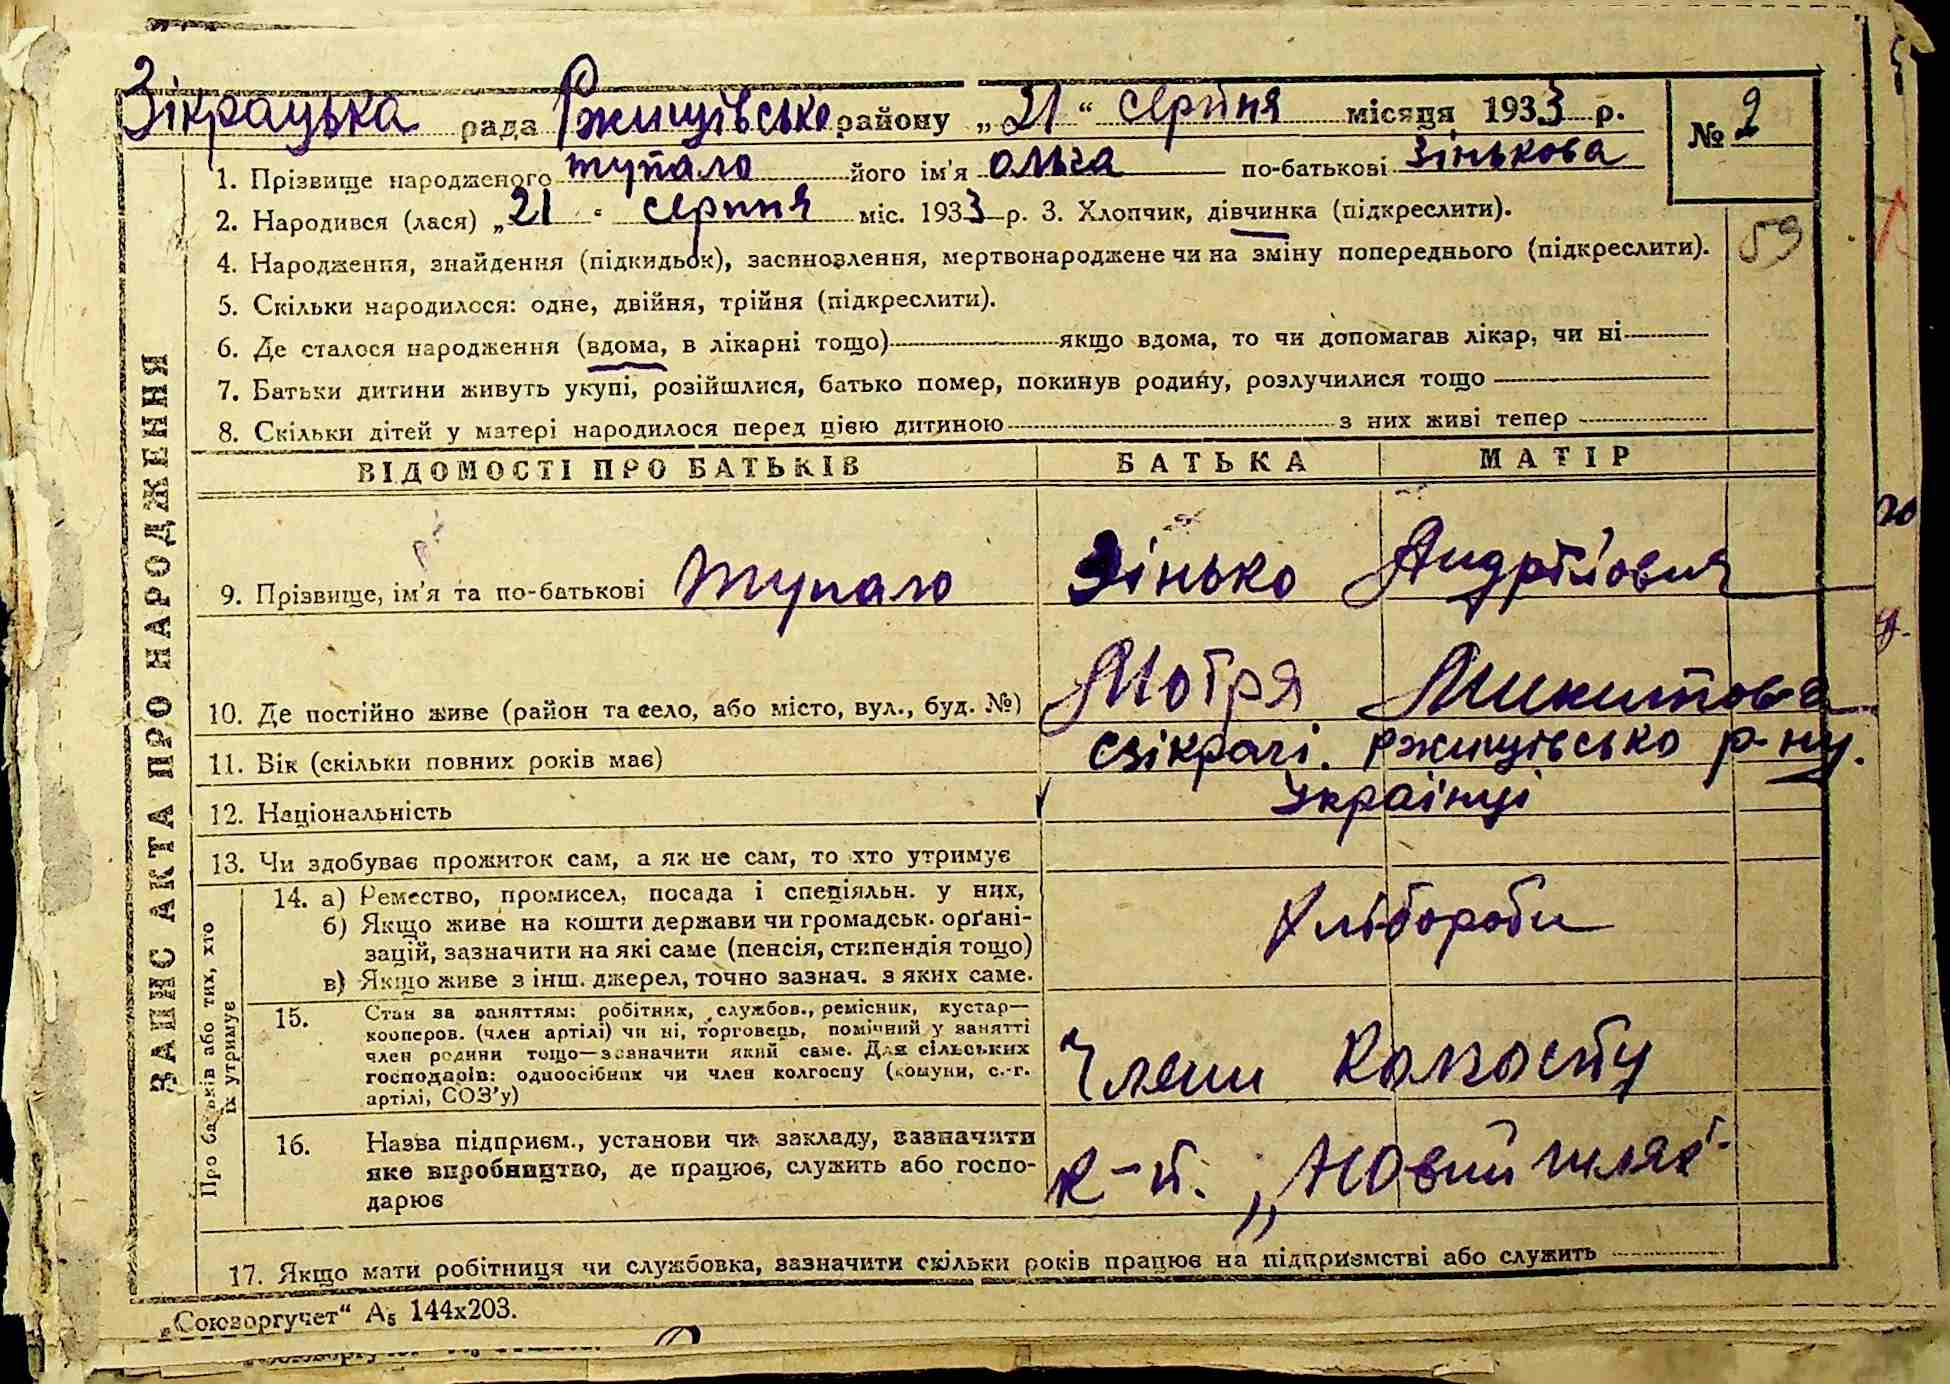 Зікрацька рада Ржищівсько району „21“ серпня місяця 1933 р.
№ 2
1. Прізвище народженого тупало його ім'я ольга по-батькові Зінькова
2. Народився (лася) „21“ серпня міс. 1933 р. 3. Хлопчик, дівчинка (підкреслити).
59
4. Народження, знайдення (підкидьок), засиновлення, мертвонароджене чи на зміну попереднього (підкреслити).
5. Скільки народилося: одне, двійня, трійня (підкреслити).
6. Де сталося народження (вдома, в лікарні тощо) якщо вдома, то чи допомагав лікар, чи ні
7. Батьки дитини живуть укупі, розійшлися, батько помер, покинув родину, розлучилися тощо
8. Скільки дітей у матері народилося перед цією дитиною з них живі тепер
ЗАПИС АКТА ПРО НАРОДЖЕННЯ
ВІДОМОСТІ ПРО БАТЬКІВ БАТЬКА МАТІР
9. Прізвище, ім'я та по-батькові тупало Зінько Андрійович
Мотря Микитова
10. Де постійно живе (район та село, або місто, вул., буд. №)
с зікрачі. Ржищівсько р-ну.
11. Вік (скільки повних років має)
Українці
12. Національність
13. Чи здобуває прожиток сам, а як не сам, то хто утримує
Про батьків або тих, хто їх утримує
14. а) Ремество, промисел, посада і спеціяльн. у них,
б) Якщо живе на кошти держави чи громадськ. орґані-
зацій, зазначити на які саме (пенсія, стипендія тощо)
в) Якщо живе з інш. джерел, точно зазнач. з яких саме.
Хлібороби
15. Стан за заняттям: робітник, службов., ремісник, кустар—
кооперов. (член артілі) чи ні, торговець, помічний у занятті
член родини тощо—зазначити який саме. Для сільських
господарів: одноосібник чи член колгоспу (комуни, с.-г.
артілі, СОЗ'у)
Члени Колгоспу
16. Назва підприєм., установи чи закладу, зазначити
яке виробництво, де працює, служить або госпо-
дарює
к-п. „Новий шлях“
17. Якщо мати робітниця чи службовка, зазначити скільки років працює на підприємстві або служить
„Союзоргучет“ А5 144х203.